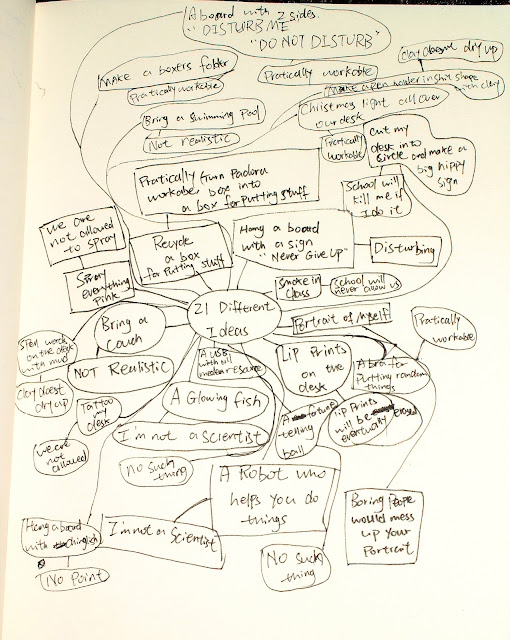 A board with 2 sides.
"DISTURB ME"
"DO NOT DISTURB"
Make a boxers folder
Pratically workable
Pratically workable
Clay doesnt dry up
Make a pen holder in shit shape
with clay
Bring a swimming pool
Not realistic
Christmas light all over
our desk
Pratically
workable
Cut my
desk into
circle and make a
big hippy
sign
School will
kill me if
I do it
Pratically
workable
turn Padora
box into
a box for putting stuff
Recycle
a box
for putting stuff
Hang a board
with a sign
"Never Give Up"
Disturbing
we are
not allowed
to spray
Spray
everything
pink
Smoke in
class
School will
never allow us
21 Different
Ideas
Portrait of Myself
Pratically
workable
Bring a
couch
NOT Realistic
Stem work
on the desk
with mud
Clay doesnt
dry up
Tattoo
my
desk
we are
not
allowed
A USB
with all
resource
A Glowing fish
I'm not a scientist
No such
thing
Lip Prints
on the
desk
A bra for
Putting random
things
lip Prints
will be erased
eventually
A fortune
telling
ball
A Robot who
helps you do
things
I'm not a Scientist
No such
thing
Hang a board
with
No Point
Boring People
would mess
up your
Portrait